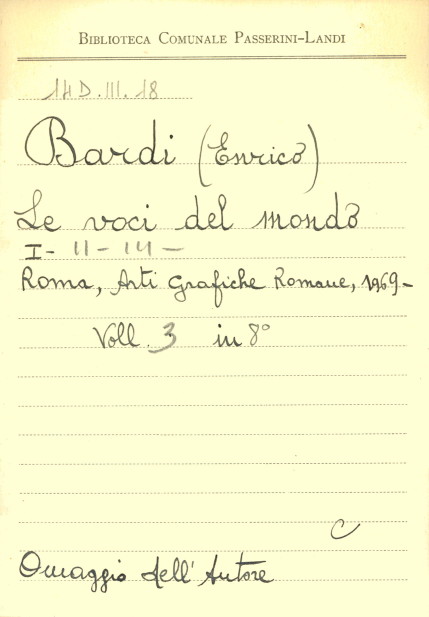 BIBLIOTECA COMUNALE PASSERINI-LANDI
14 D. III. 18
Bardi (Enrico)
Le voci del mondo
I - II - III -
Roma, Arti Grafiche Romane, 1969-
Voll. 3 in 8°
C
Omaggio dell'Autore